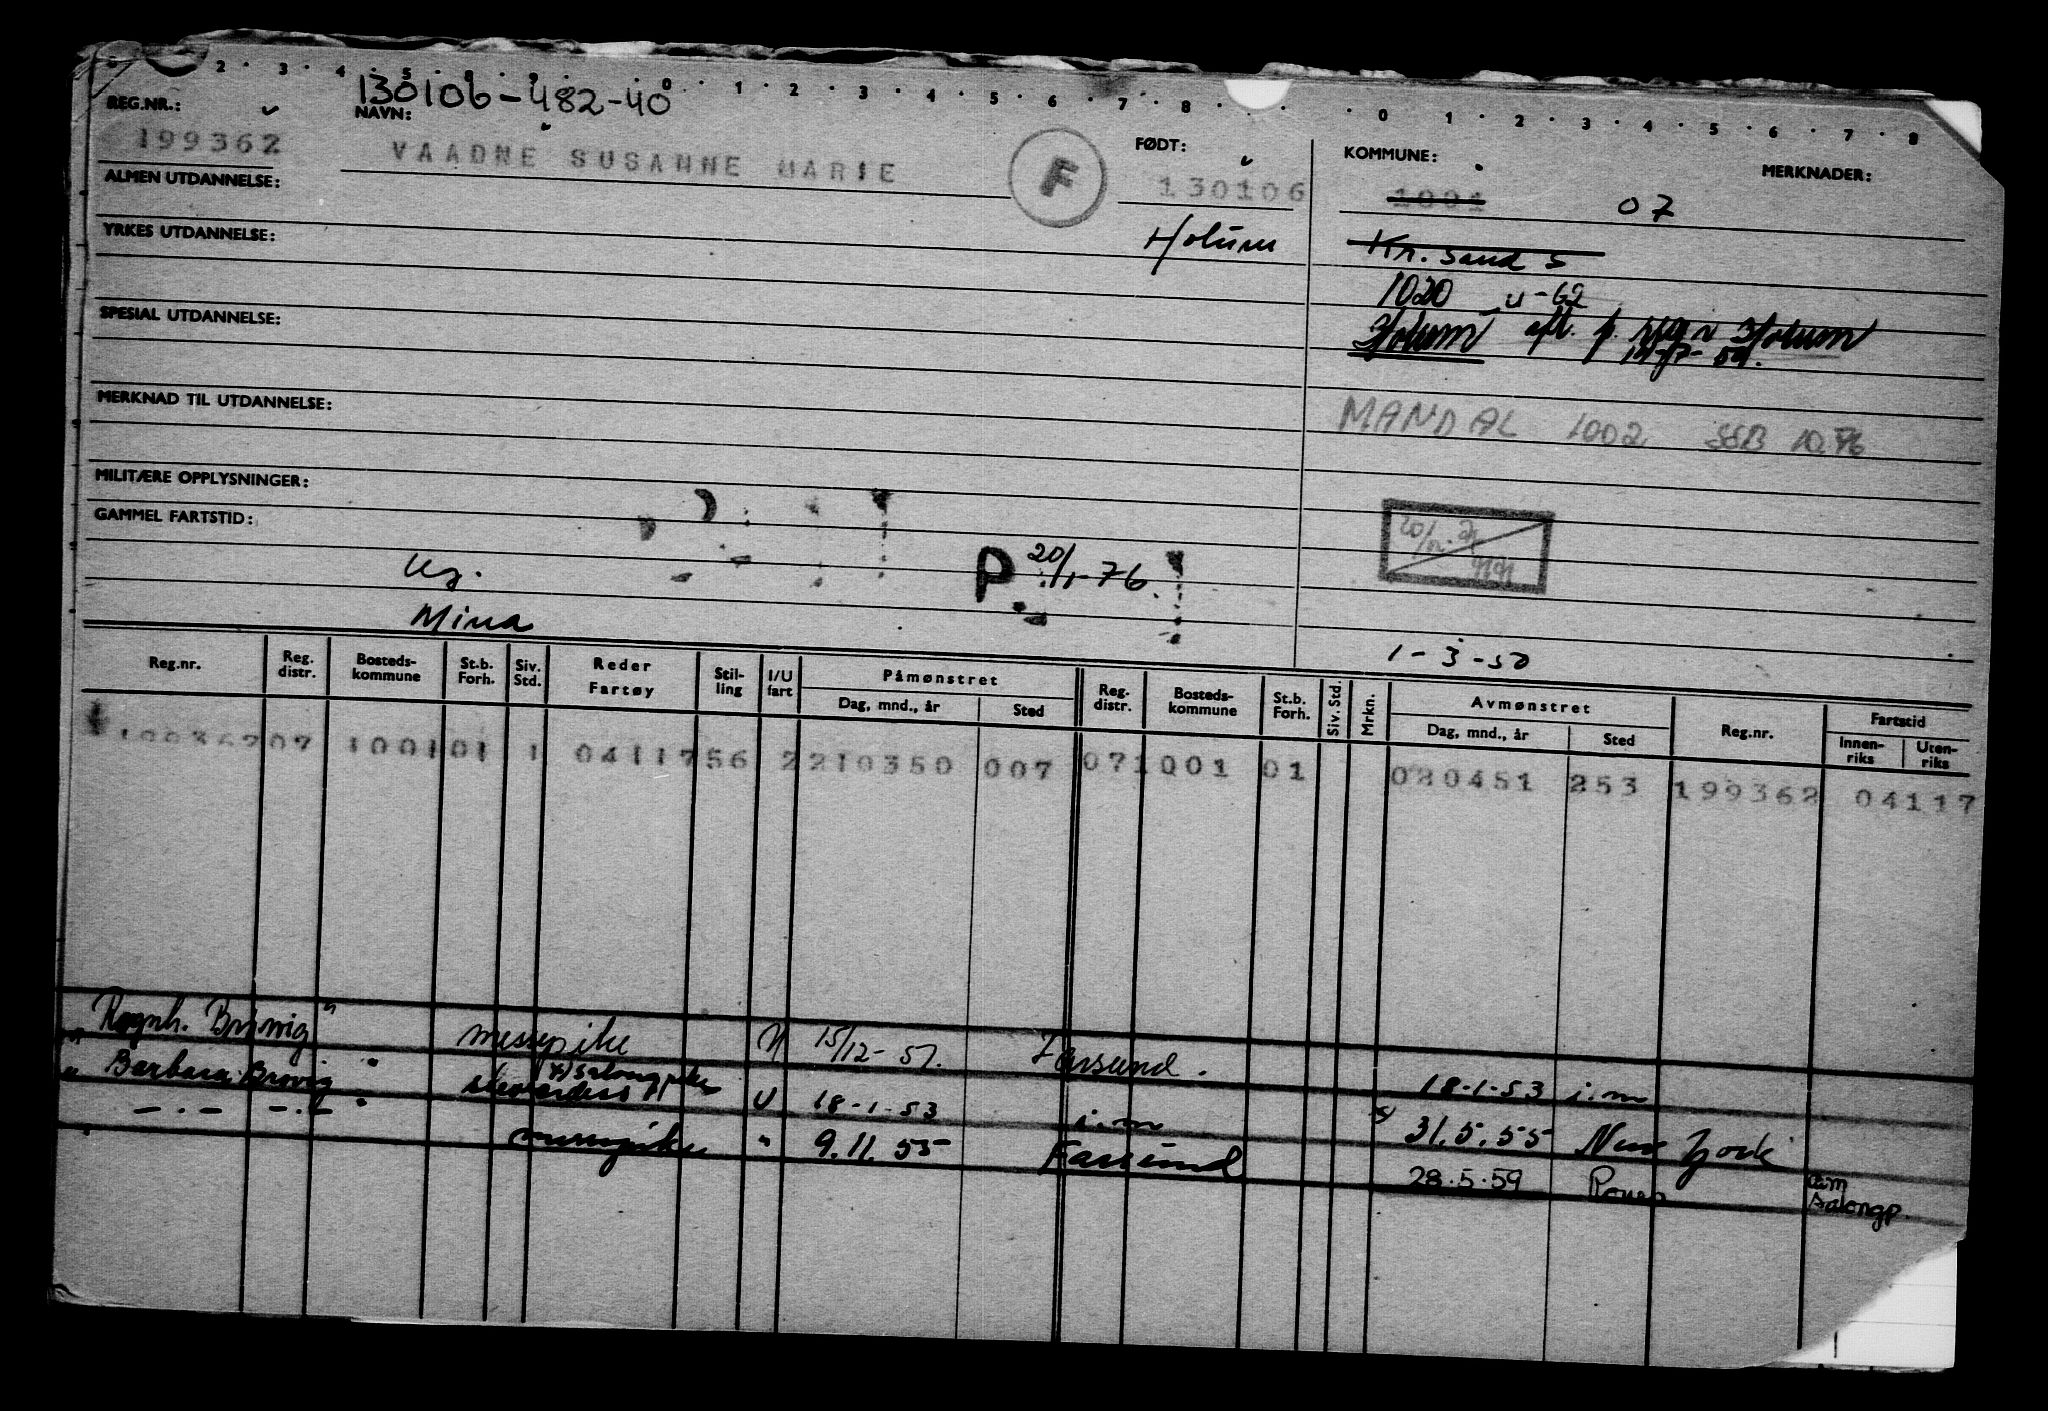 2 3 4 5 6 7 0 1 2 3 4 5 6 7 8 0 1 2 3 4 5 6 7 8
130106-482-40
REG.NR.: NAVN: FØDT: KOMMUNE: MERKNADER:
199362 VAADNE SUSANNE MARIE F 130106 1001 07
ALMEN UTDANNELSE:
Holum Kr. sand S
YRKES UTDANNELSE:
1020 u-62
Holum aft. p. Holum
SPESIAL UTDANNELSE:
MERKNAD TIL UTDANNELSE:
MANDAL 1002 SSB 10.76
MILITÆRE OPPLYSNINGER:
GAMMEL FARTSTID:
Ug. P 20/1-76.
Mina
1-3-50
Reg.nr. Reg. distr. Bosteds-kommune St.b. Forh. Siv. Std. Reder Fartøy Stil-ling I/U fart Påmønstret Dag, mnd., år Sted Reg. distr. Bosteds-kommune St.b. Forh. Siv. Std. Mrkn. Avmønstret Dag, mnd., år Sted Reg.nr. Fartstid Innen-riks Uten-riks
199362 07 1001 01 1 04117 56 2 210350 007 07 1001 01 080451 253 199362 04117
" Ragnh. Brøvig " messepike U 15/12-51. Farsund. 18-1-53 i.m
" Barbara Brøvig " stewardess x) salongpike U 18-1-53 i.m x) 31.5.55 New York
— . — — . — " messepike " 9.11.55 Farsund 28.5.59 Rouen am salongp.